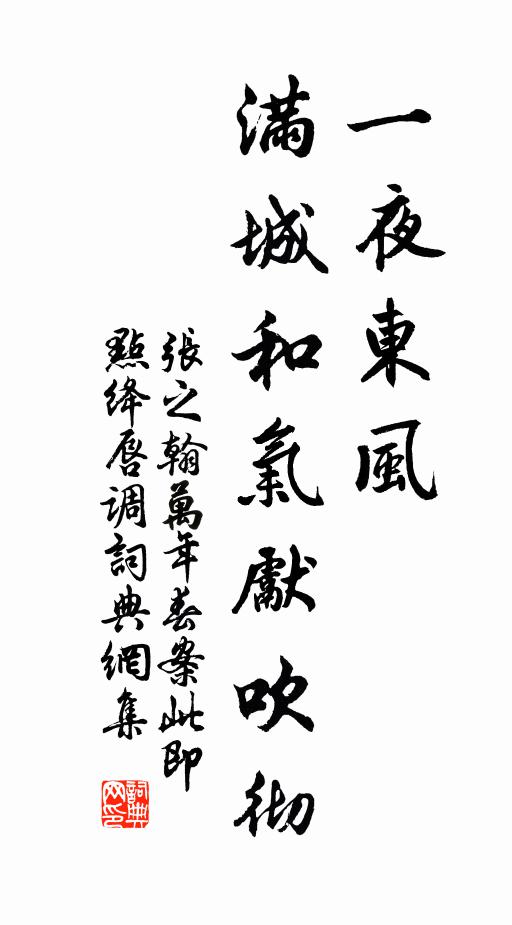 一夜東風
滿城和氣獻吹彻
張之翰萬年春案此即
點绛唇调詞典網集
詞典网印